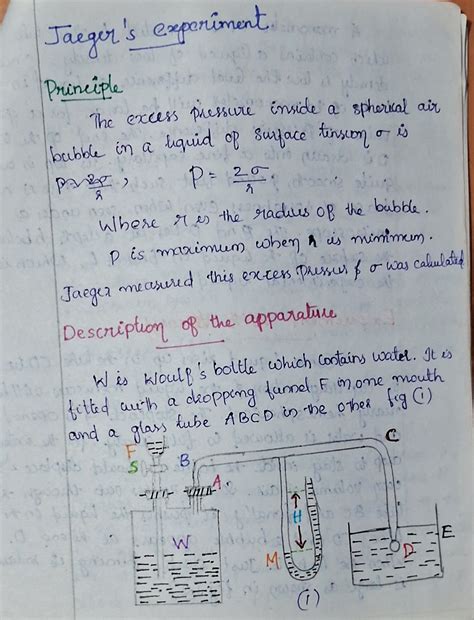 Jaeger's experiment
Principle
The excess pressure inside a spherical air
bubble in a liquid of surface tension σ is
P = 2σ/r, P = 2σ/r.
Where r is the radius of the bubble.
P is maximum when r is minimum.
Jaeger measured this excess pressure & σ was calculated
Description of the apparature
W is Woulf's bottle which contains water. It is
fitted with a dropping funnel F in one mouth
and a glass tube ABCD in the other fig (1)
F
S
B
A
C
W
H
M
D
E
(1)